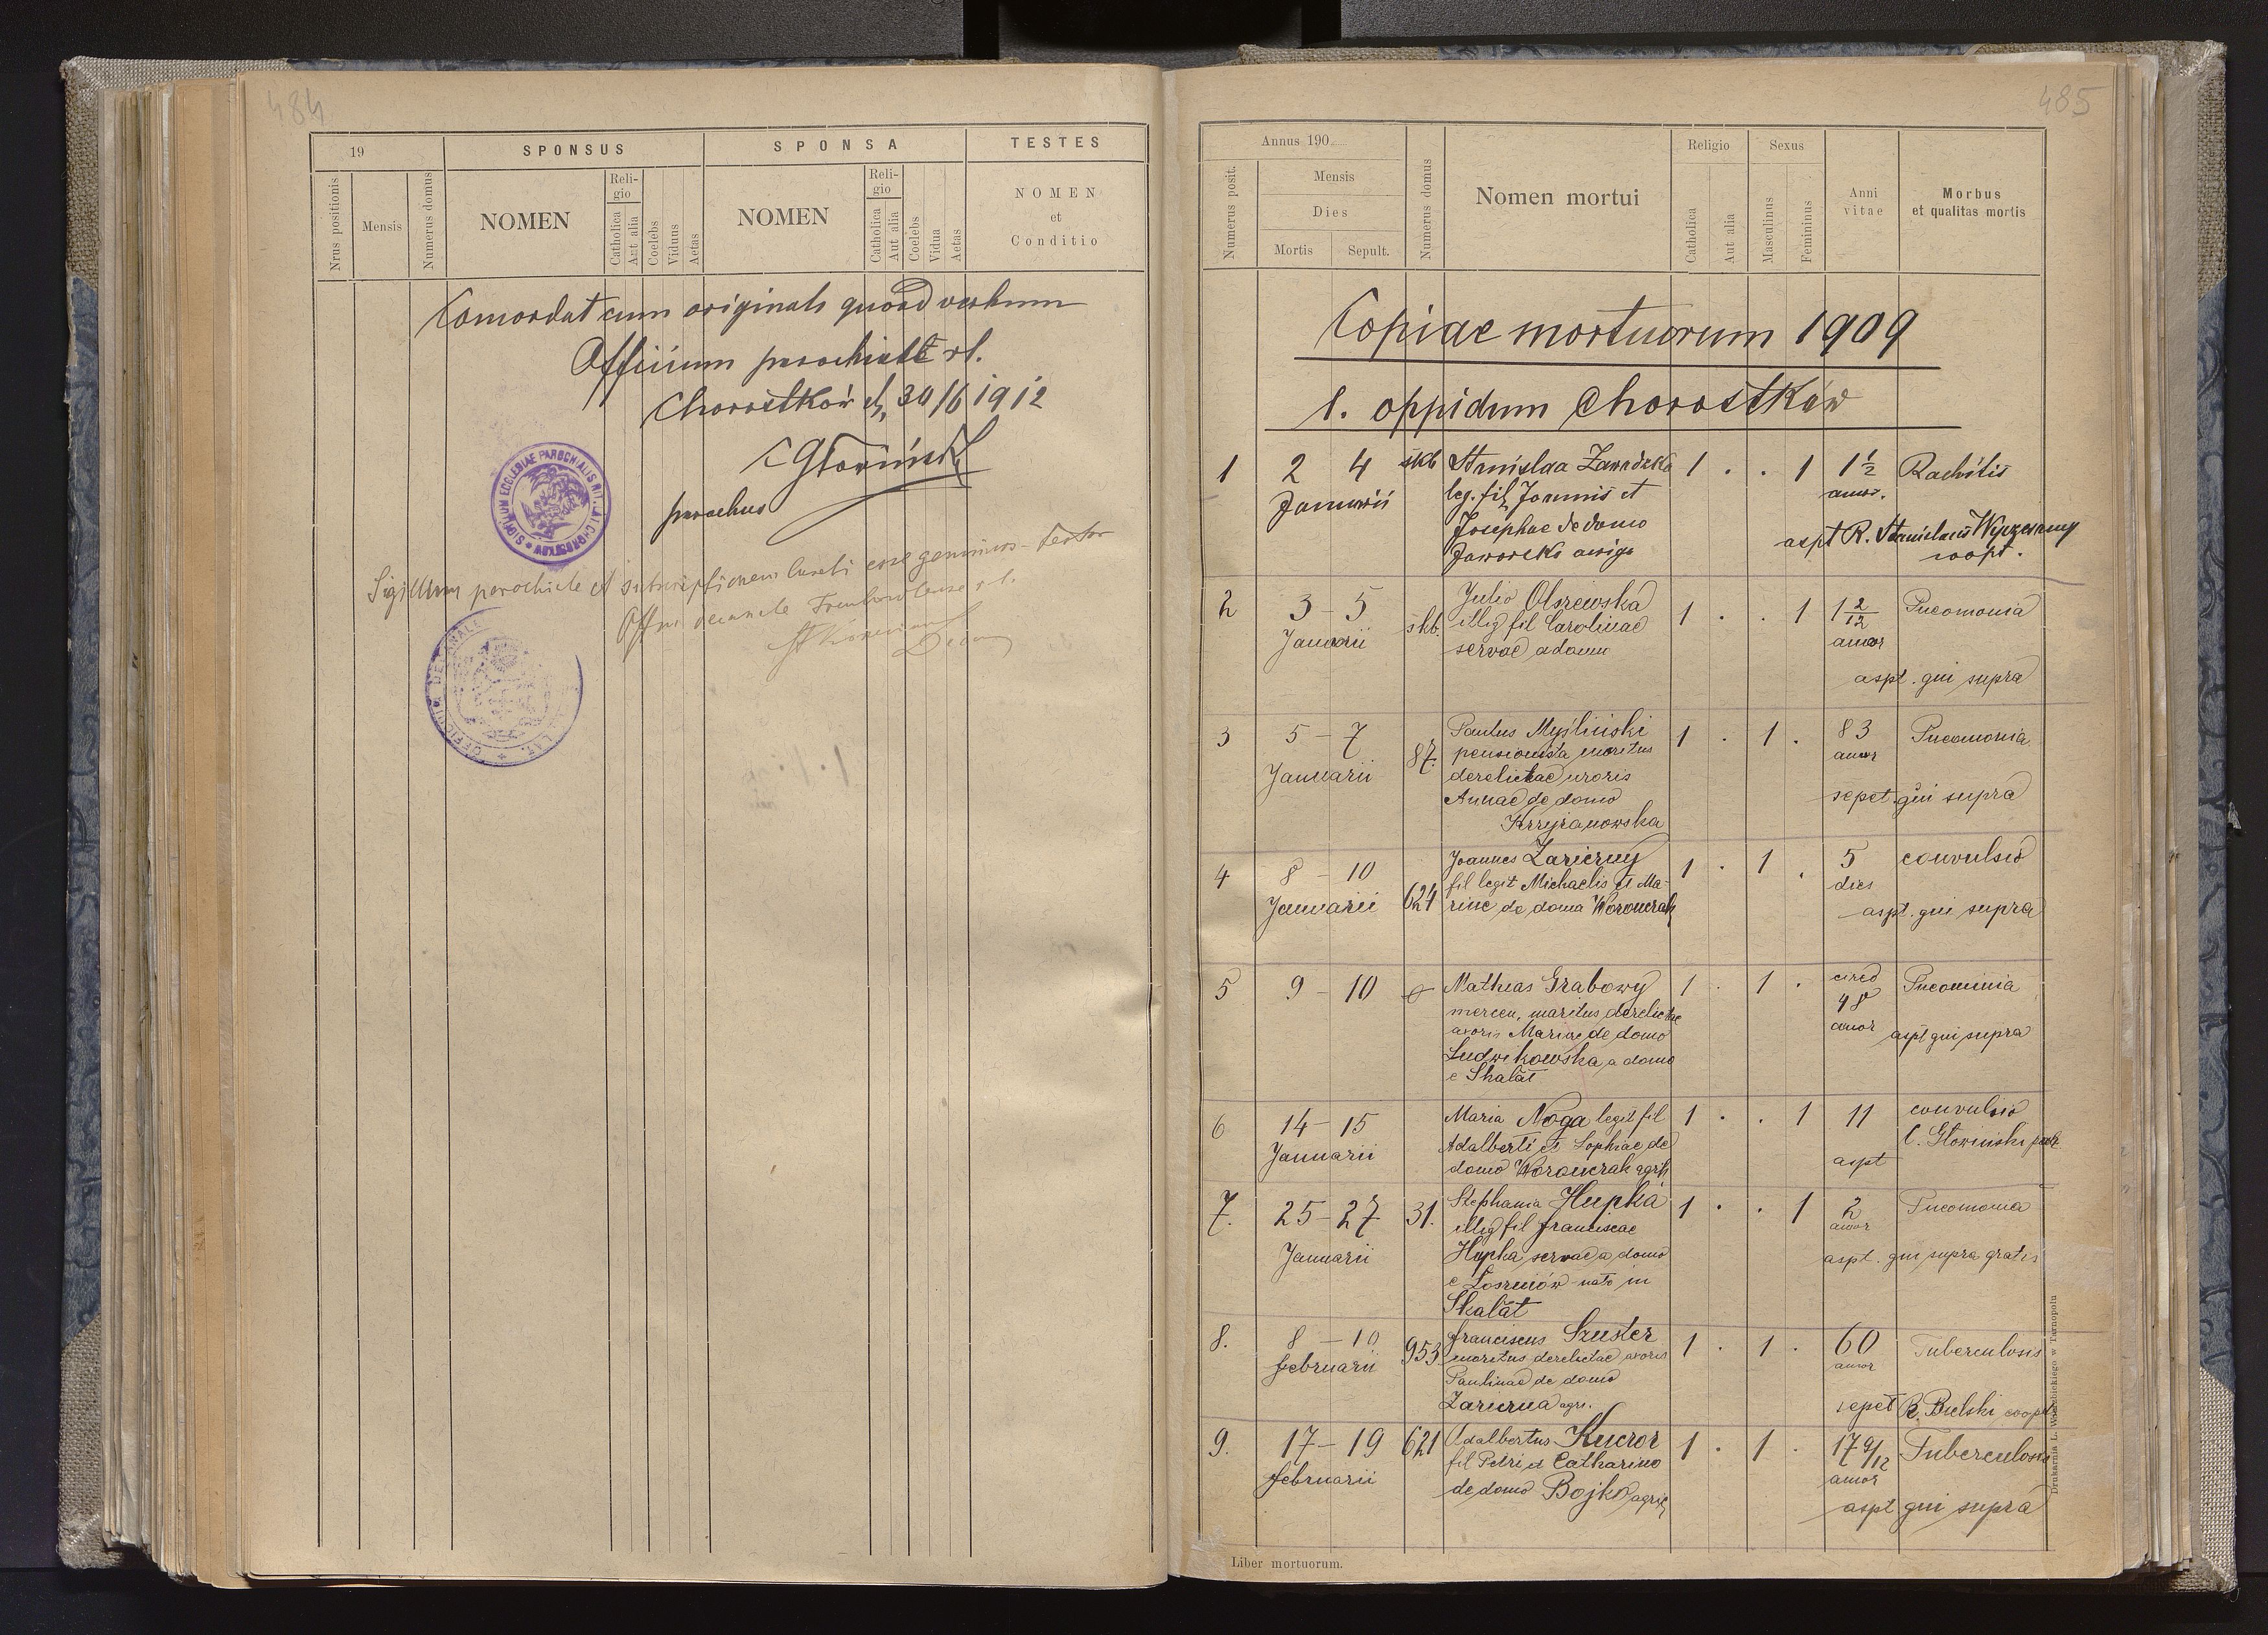 484
19
SPONSUS
SPONSA
TESTES
Nrus positionis
Mensis
Numerus domus
NOMEN
Religio
Catholica
Aut alia
Coelebs
Viduus
Aetas
NOMEN
Religio
Catholica
Aut alia
Coelebs
Vidua
Aetas
NOMEN
et
Conditio
Concordat cum originali quoad verbum
Officium parochiale rl.
Chorostków d, 30/6 1912
CGłowiński
parochus
SIGILLUM ECCLESIAE PAROCHIALIS RIT. LAT. CHOROSTKÓW
Sigillum parochiale et subscriptionem Curati esse genuinas testor
Offm decanale Trembowlense r.l.
Decan
OFFICIUM DECANALE LAT.
485
Annus 190
Numerus posit.
Mensis
Dies
Mortis
Sepult.
Numerus domus
Nomen mortui
Religio
Catholica
Aut alia
Sexus
Masculinus
Femininus
Anni
vitae
Morbus
et qualitas mortis
Copiae mortuorum 1909
1. oppidum Chorostków
1 2 4 skb Stanislaa Zawadzka 1 . . 1 1½ Rachitis
Januarii leg. fil. Joannis et annor.
Josephae de domo
Jaworska auriga aspt R. Stanislaus Wyrzesany
coopt.
2 3 - 5 skb. Julia Olszewska 1 . . 1 1 2/12 Pneomonia
Januarii illg fil Carolinae annor
servae a domu
aspt. qui supra
3 5 - 7 87. Paulus Myśliński 1 . 1 . 83 Pneomonia
Januarii pensionista maritus annor
derelictae uxoris
Annae de domo sepet. qui supra
Krzyżanowska
4 8 - 10 624 Joannes Zariczny 1 . 1 . 5 convulsio
Januarii fil legit Michaelis et Ma- dies
rine de doma Woronczak aspt. qui supra
5 9 - 10 Mathias Grabowy 1 . 1 . circa Pneominia
mercen, maritus derelictae 48
uxoris Mariae de domo annor aspt qui supra
Ludwikowska a domo
e Skałat
6 14 - 15 Maria Noga legit fil 1 . . 1 11 convulsio
Januarii Adalberti et Sophiae de C. Głowiński par
domo Woronczak agrk aspt
7. 25 - 27 31. Stephania Hupka 1 . . 1 2 Pneomonia
illeg fil Franciscae annor
Januarii Hupka servae a domo aspt. qui supra gratis
e Łoszniów nata in
Skałat
8. 8 - 10 953 Franciscus Szuster 1 . 1 . 60 Tuberculosis
februarii maritus derelictae uxoris annor
Paulinae de domo
Zariczna agri. sepet R. Bielski coopt
9. 17 - 19 621 Adalbertus Kuczor 1 . 1 . 17 9/12 Tuberculosis
februarii fil Petri et Catharina annor
de domo Bojko agric
aspt qui supra
Liber mortuorum.
Drukarnia L. Wierzbickiego w Tarnopolu